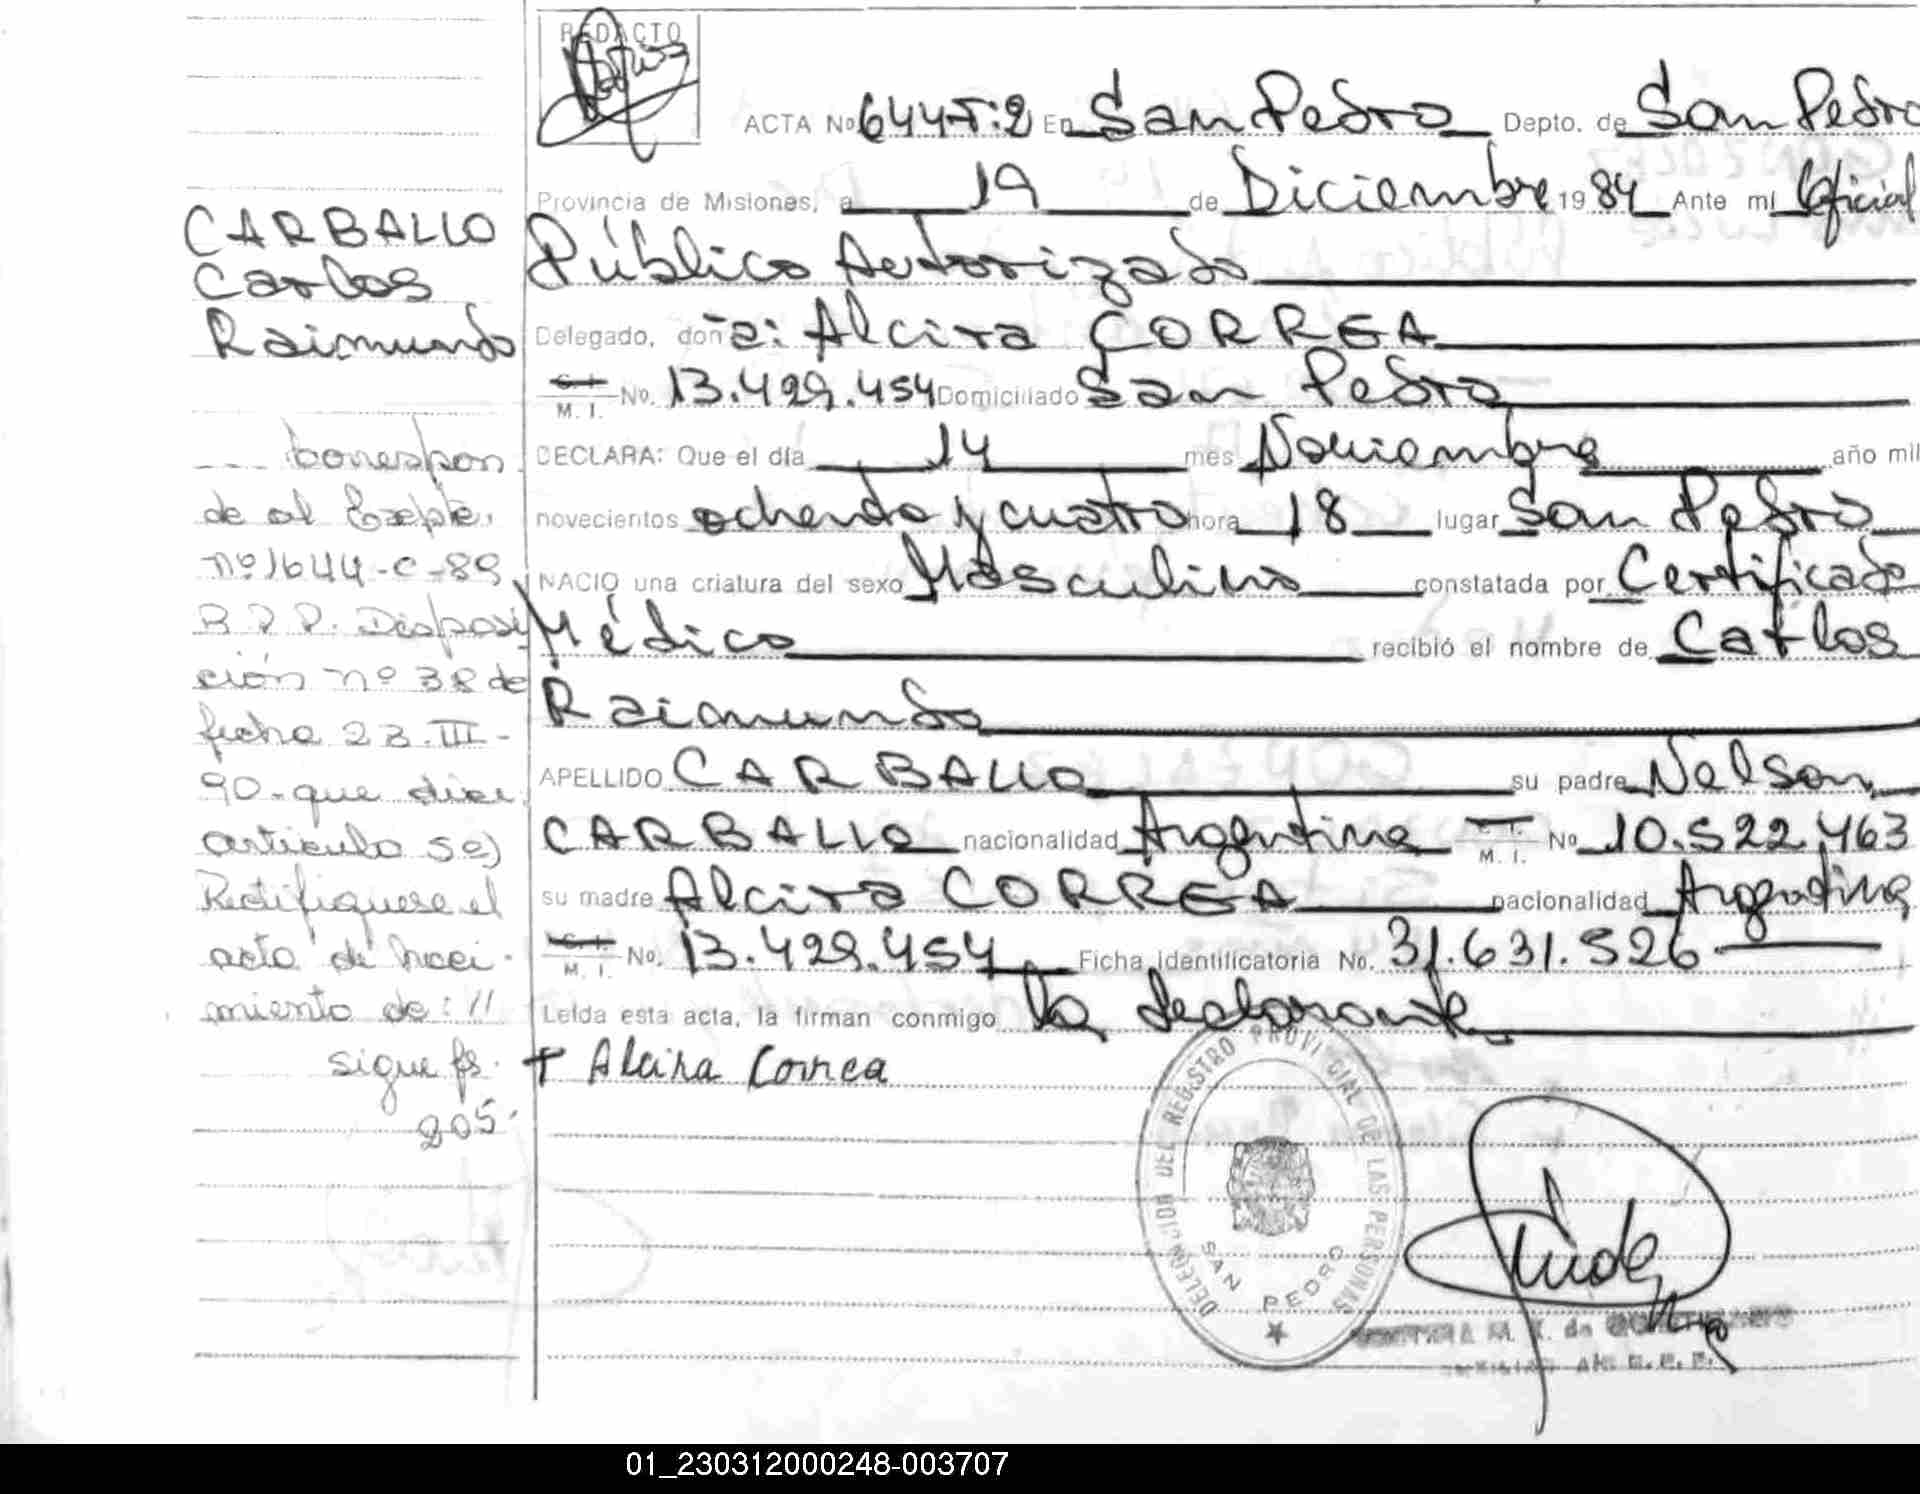 REDACTO
ACTA Nº 644-T:2 En San Pedro Depto. de San Pedro
Provincia de Misiones, a 19 de Diciembre 1984 Ante mi Oficial
Público Autorizado
Delegado, doña: Alcira CORREA
C. I.
M. I. No. 13.429.454 Domiciliado San Pedro
DECLARA: Que el día 14 mes Noviembre año mil
novecientos ochenta y cuatro hora 18 lugar San Pedro
NACIO una criatura del sexo Masculino constatada por Certificado
Médico recibió el nombre de Carlos
Raimundo
APELLIDO CARBALLO su padre Nelson
CARBALLO nacionalidad Argentina C. I. M. I. Nº 10.522.463
su madre Alcira CORREA nacionalidad Argentina
C. I.
M. I. No. 13.429.454 Ficha Identificatoria No. 31.631.526
Leída esta acta, la firman conmigo la declarante
+ Alcira Correa
CARBALLO
Carlos
Raimundo
correspon
de al Expte.
nº 1644-C-89
R.P.P. Disposi
ción nº 38 de
fecha 23.III-
90-que dice
artículo 5º)
Rectifiquese el
acta de naci-
miento de: //
sigue fs.
205.
DELEGACION DEL REGISTRO PROVINCIAL DE LAS PERSONAS
SAN PEDRO
01_230312000248-003707